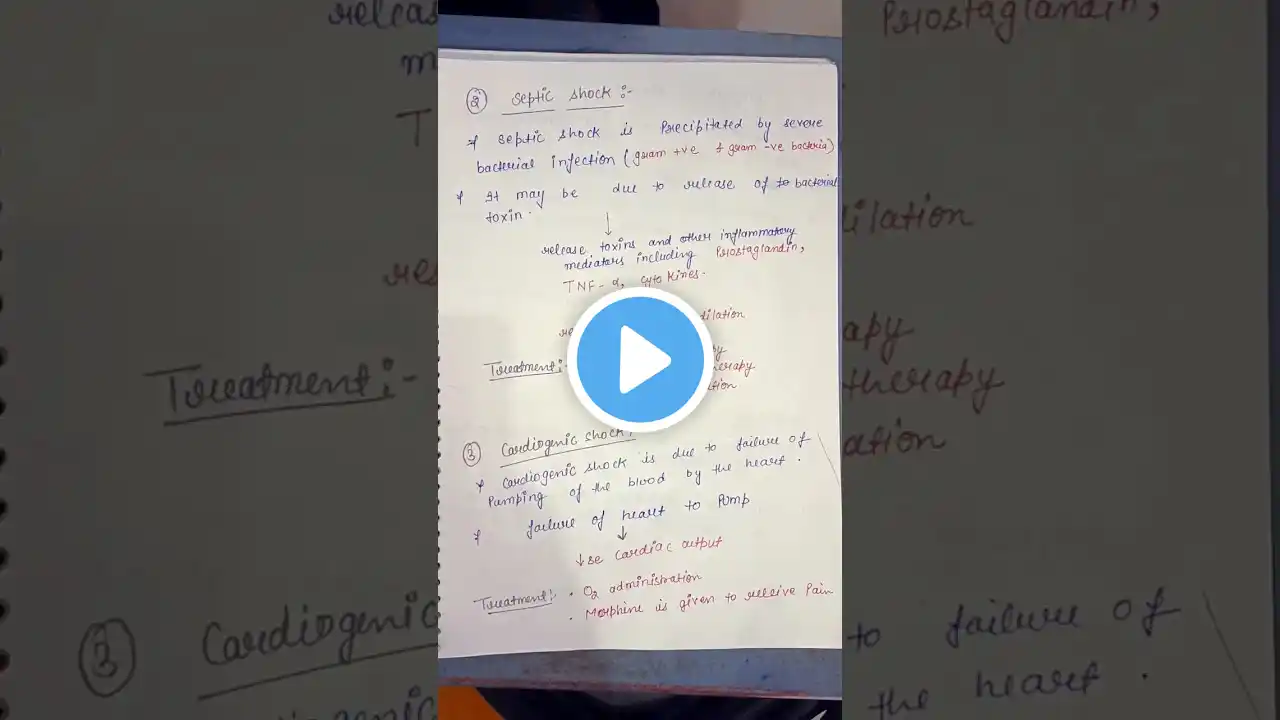 ② Septic shock :-
* Septic shock is Precipitated by severe
bacterial infection (gram +ve & gram -ve bacteria)
* It may be due to release of to bacterial
toxin.
↓
release toxins and other inflammatory
mediators including Prostaglandin,
TNF-α, Cytokines.
dilation
Treatment:-
therapy
③ Cardiogenic shock:
* Cardiogenic shock is due to failure of
Pumping of the blood by the heart.
* failure of heart to Pump
↓
↓se cardiac output
Treatment:- • O2 administration
• Morphine is given to releive Pain